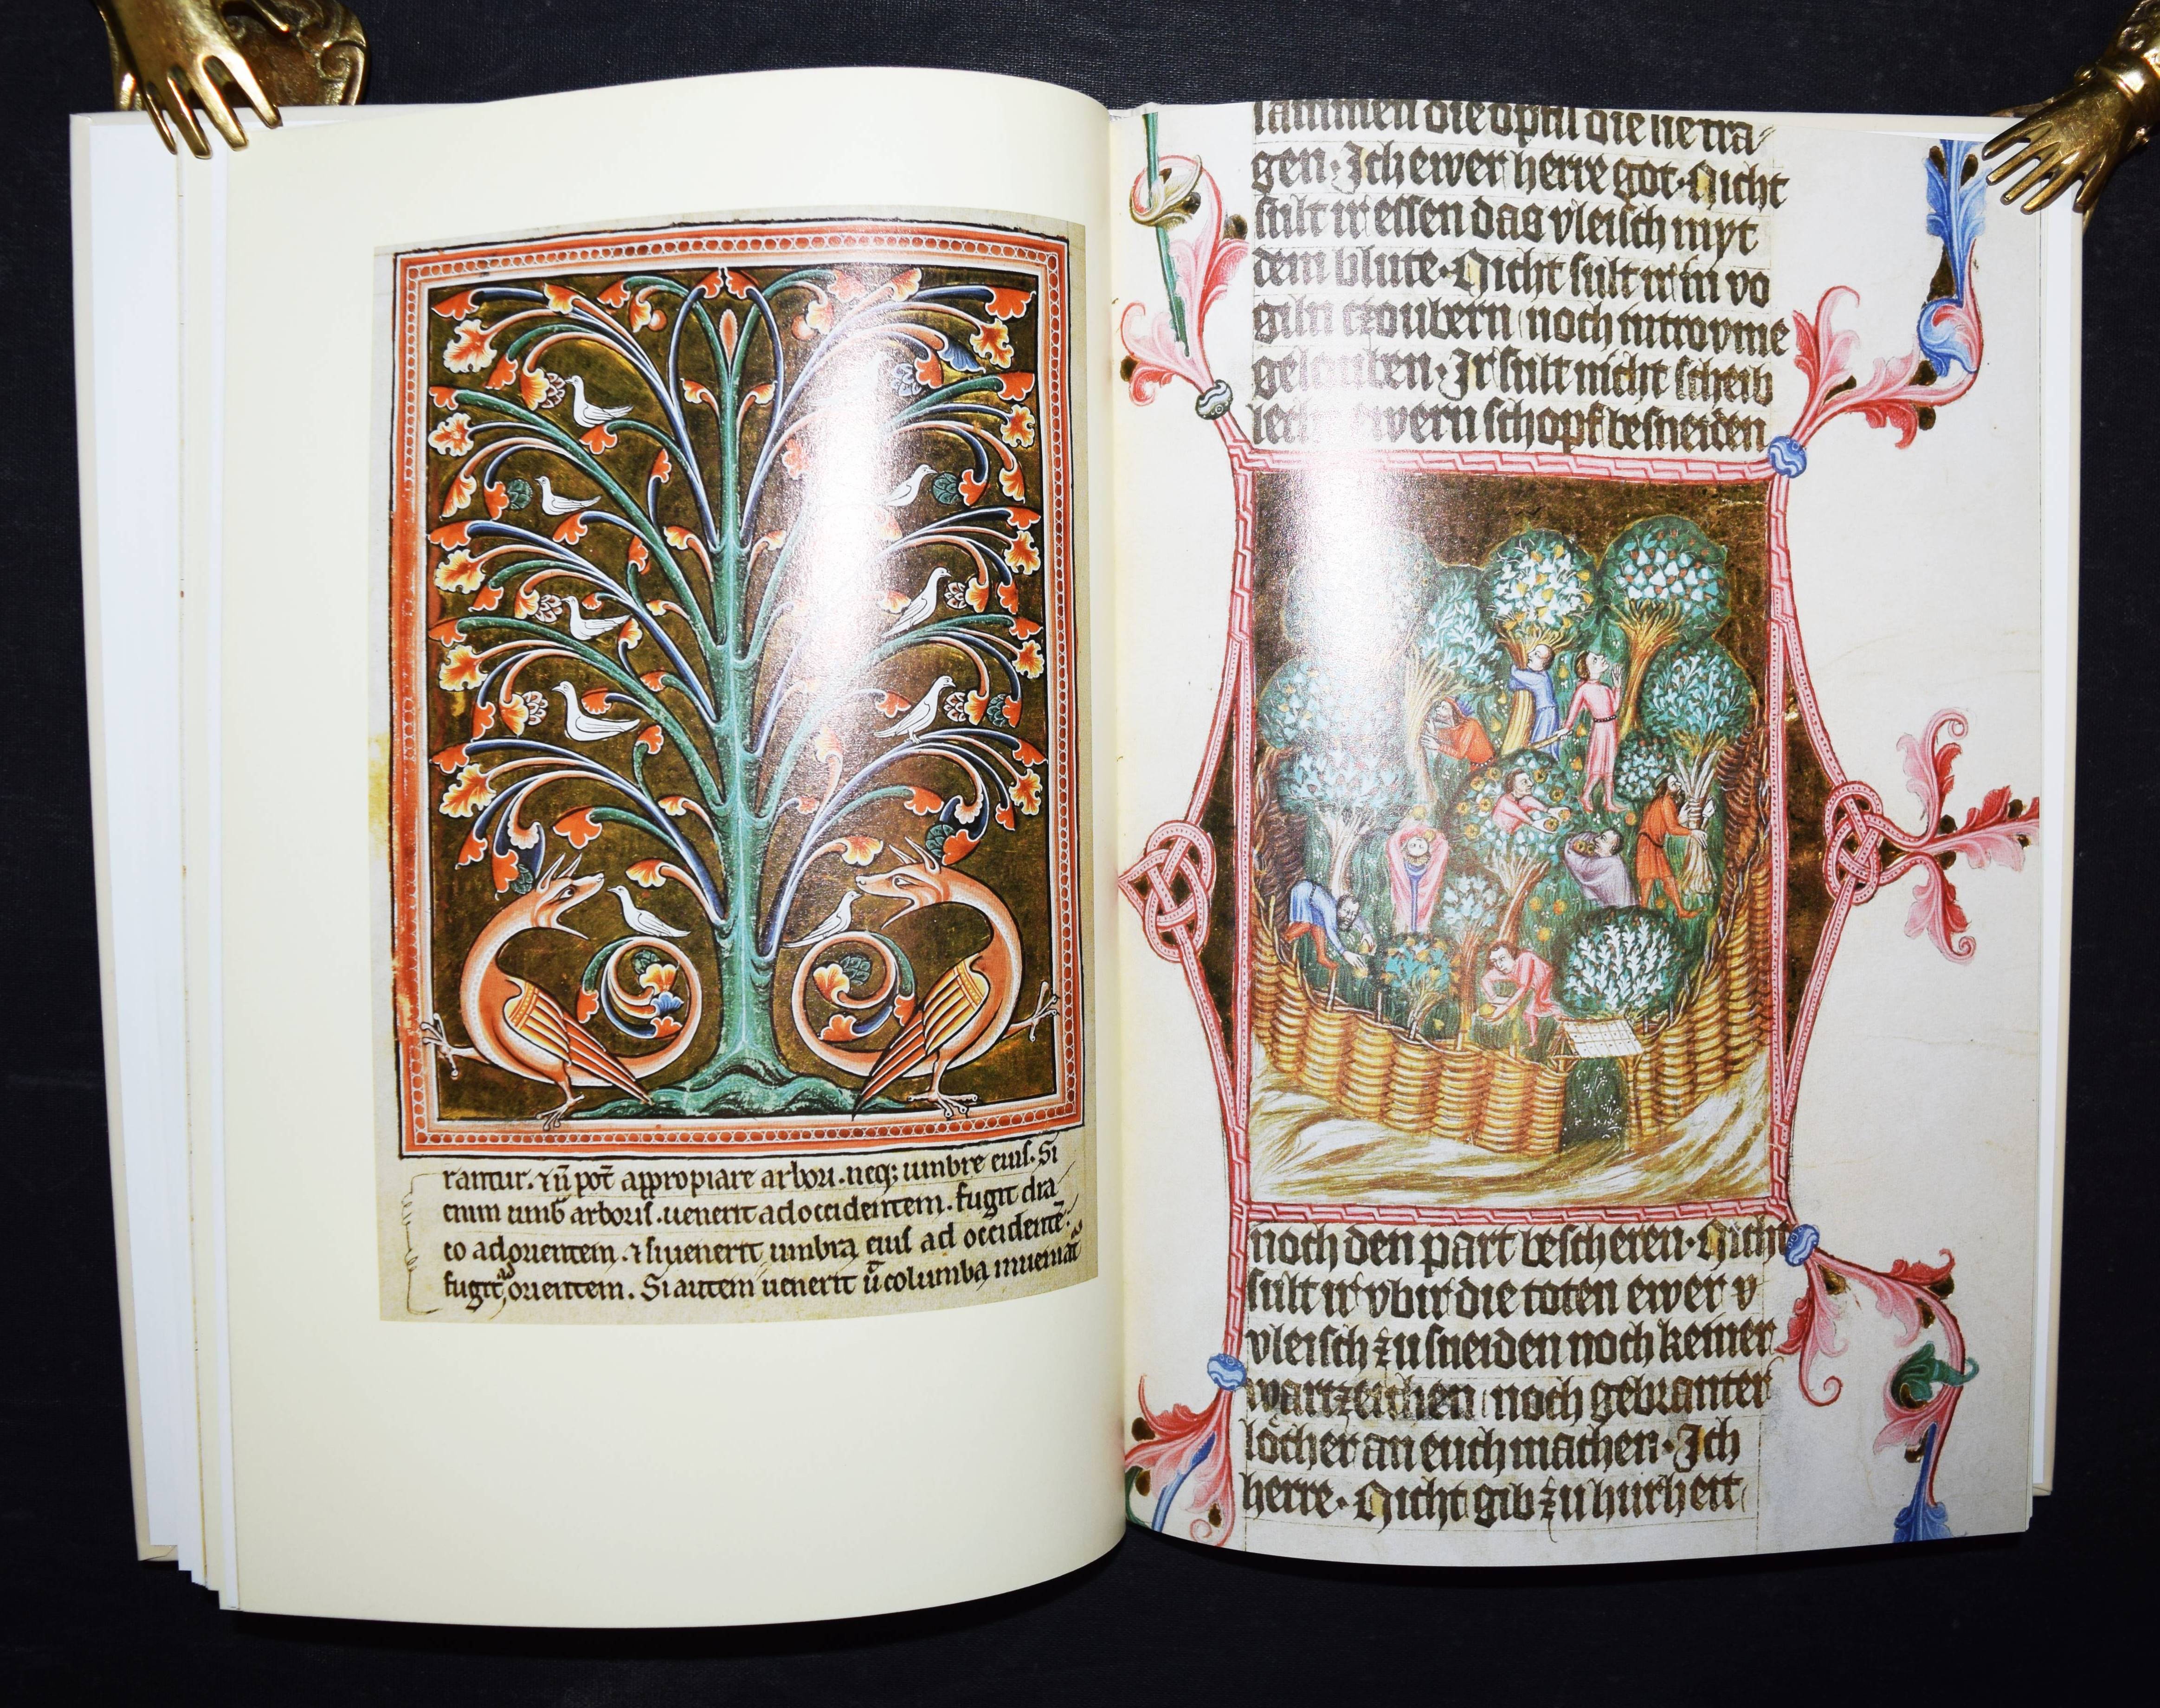 rantur. ⁊ n̄ pot̄ appropiare arbori. neq; umbre eius. Si
enim umb̄ arboris. uenerit ad occidentem. fugit dra
co ad orientem. ⁊ si uenerit umbra eius ad occidentē.
fugit ad orientem. Si autem uenerit ū columba inueniat̄
sammen die opfil die sie tra-
gen. Ich ewer herre got. Nicht
sult ir essen das vleisch myt
dem blute. Nicht sult ir in vo
giln czoubern noch in trovme
gelouben. Ir sult nicht scheib
lecht ewern schopf besneiden
noch den part bescheren. Nicht
sult ir vbir die toten ewer v
vleisch zu sneiden noch keiner
wartzeichen noch gebranter
löcher an euch machen. Ich
herre. Nicht gib zu hurheit